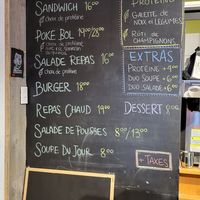 SANDWICH 16.00
choix de protéine
POKÉ BOL 19.00/28.00
choix de protéine
SALADE REPAS 16.00
choix de protéine
BURGER 18.00
REPAS CHAUD 19.00
SALADE DE POUSSES 8.00/13.00
SOUPE DU JOUR 8.00
PROTÉINE
GALETTE DE
NOIX ET LÉGUMES
RÔTI DE
CHAMPIGNONS
EXTRAS
PROTÉINE +4.00
DUO SOUPE +6.00
DUO SALADE +6.00
DESSERT
+ TAXES